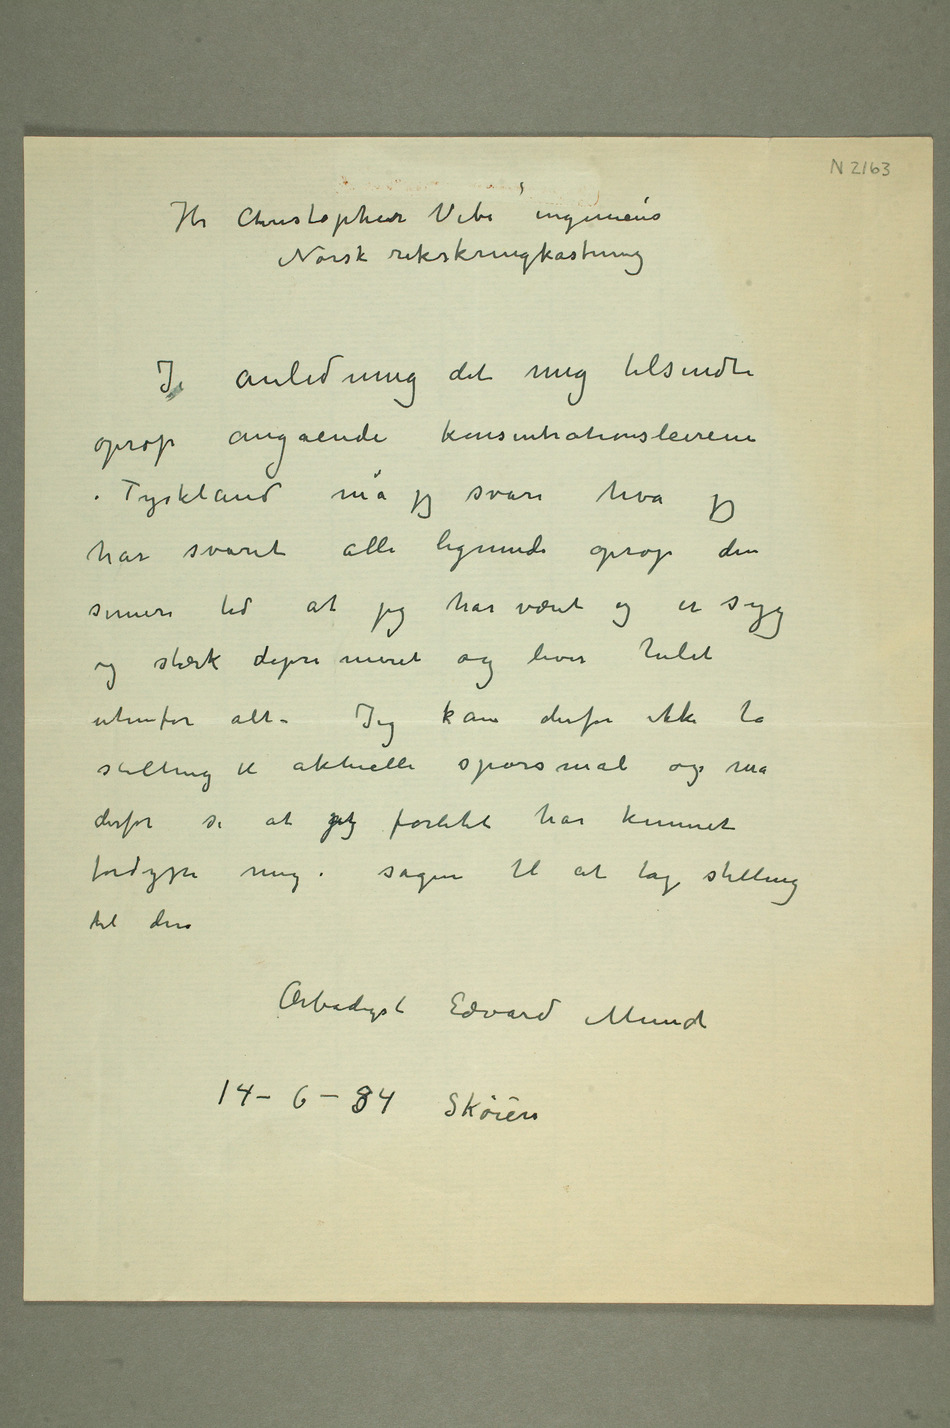 N 2163
Hr Christopher Vibe ingeniør
Norsk rikskringkastning
I anledning det mig tilsendte
oprop angaaende konsentrationsleirene
i Tyskland må jeg svare hva jeg
har svaret alle lignende oprop den
senere tid at jeg har været og er syg
og stærk deprimeret og lever helet
utenfor alt – Jeg kan derfor ikke ta
stilling til aktuelle sporsmål og må
derfor si at jeg forlitet har kunnet
fordype mig i sagen til at tag stilling
til den
Ærbødigst Edvard Munch
14 – 6 – 34 Skøien